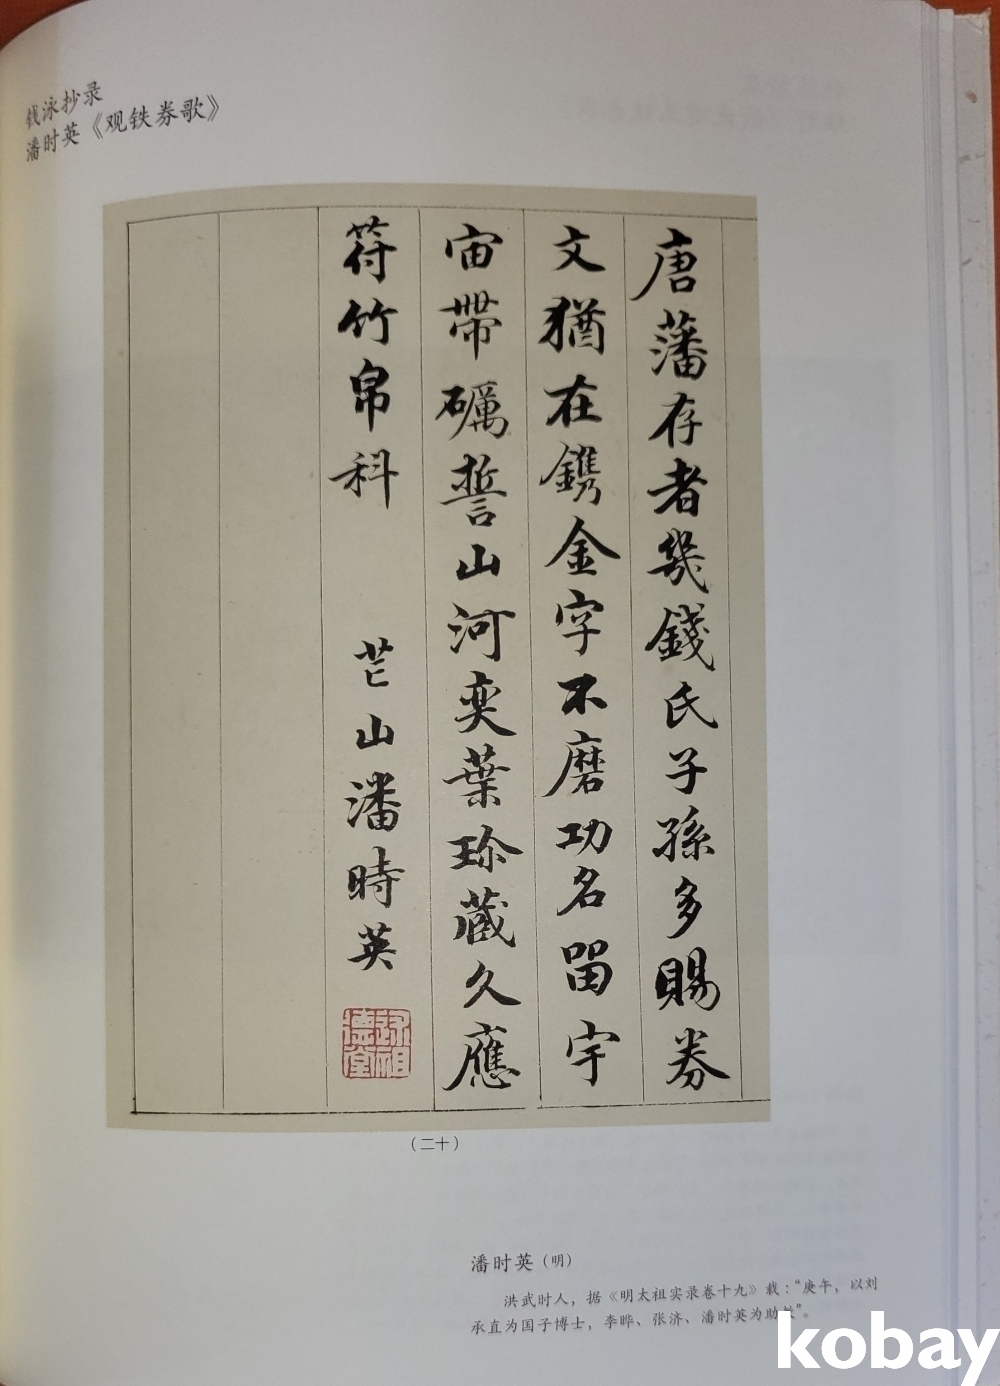 钱泳抄录
潘时英《观铁券歌》
唐藩存者幾錢氏子孫多賜券
文猶在鐫金字不磨功名留宇
宙帶礪誓山河奕葉珍藏久應
符竹帛科 芒山潘時英
述祖德堂
（二十）
潘时英（明）
洪武时人，据《明太祖实录卷十九》载：“庚午，以刘
承直为国子博士，李晔、张济、潘时英为助教”。
kobay